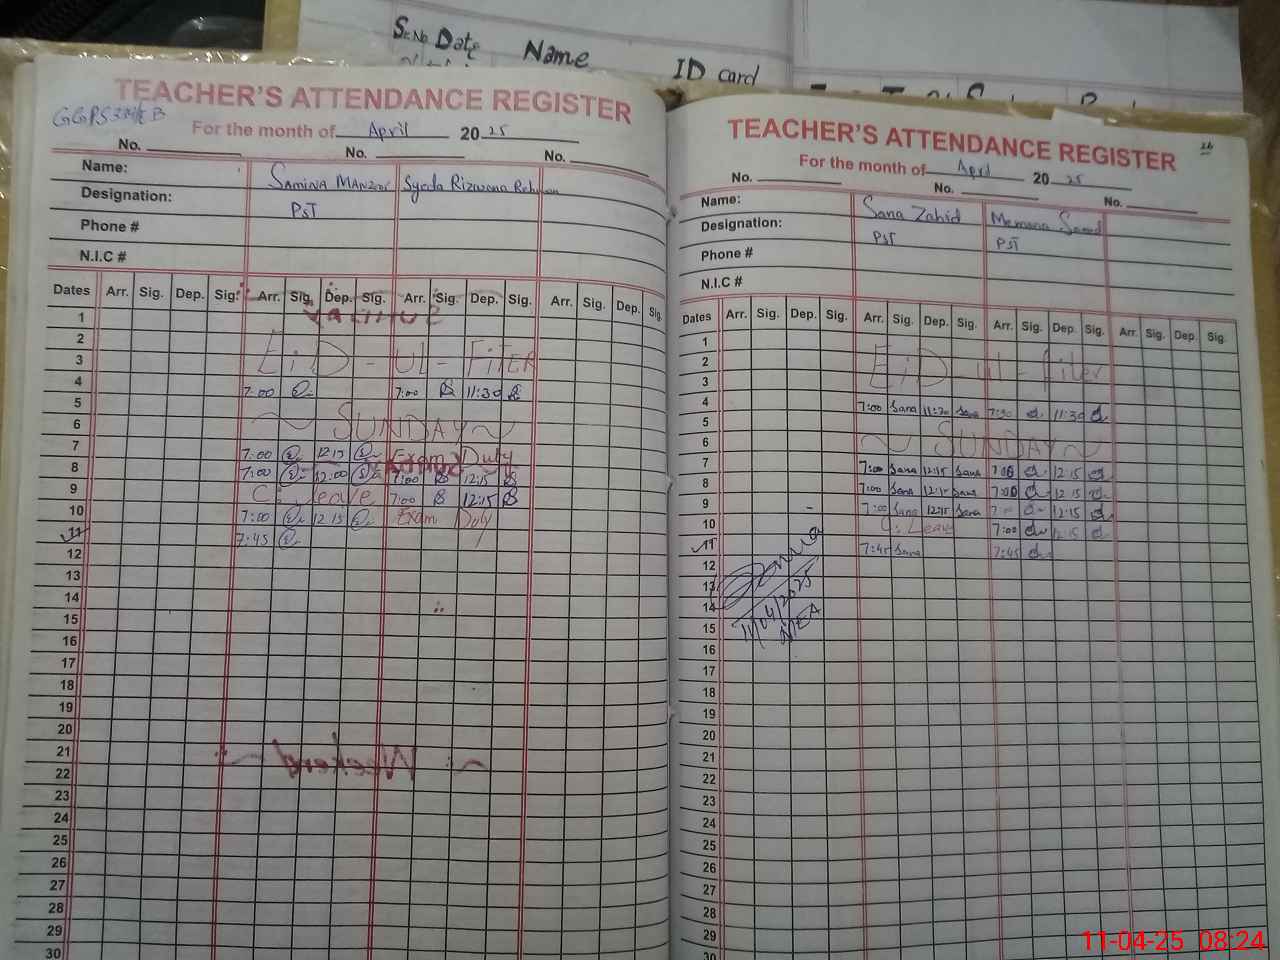 Sr.No Date Name ID card
TEACHER'S ATTENDANCE REGISTER
For the month of April 2025
No. No. No.
Name: SAMINA MANZOOR Syeda Rizwana Rehman
Designation: PST
Phone #
N.I.C #
Dates Arr. Sig. Dep. Sig. Arr. Sig. Dep. Sig. Arr. Sig. Dep. Sig. Arr. Sig. Dep. Sig.
1
2
3 EiD - ul - FiTER
4 7:00 7:00 11:30
5
6 ~ SUNDAY ~
7 7:00 12:15 Exam Duty
8 7:00 12:00 7:00 12:15
9 C. leave 7:00 12:15
10 7:00 12:15 Exam Duty
11 7:45
12
13
14
15
16
17
18
19
20
21 Weekend
22
23
24
25
26
27
28
29
30
TEACHER'S ATTENDANCE REGISTER 26
For the month of April 2025
No. No. No.
Name: Sana Zahid Memona Saeed
Designation: PST PST
Phone #
N.I.C #
Dates Arr. Sig. Dep. Sig. Arr. Sig. Dep. Sig. Arr. Sig. Dep. Sig. Arr. Sig. Dep. Sig.
1
2
3 EiD - ul - fiter
4 7:00 Sana 11:30 Sana 7:00 11:30
5
6 ~ SUNDAY ~
7 7:00 Sana 12:15 Sana 7:00 12:15
8 7:00 Sana 12:15 Sana 7:00 12:15
9 7:00 Sana 12:15 Sana 7:00 12:15
10 C. Leave 7:00 12:15
11 7:45 Sana 7:45
12
13
14
11/04/2025
MEA
15
16
17
18
19
20
21
22
23
24
25
26
27
28
29
30
11-04-25 08:24